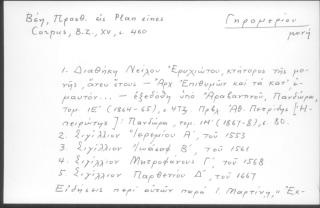 Βέη, Προσθ. εἰς Plan eines
Corpus, B.Z., XV, σ. 460
Γηρομερίου
μονή
1. Διαθήκη Νείλου Ἐριχιώτου, κτήτορος τῆς μο-
νῆς, ἄνευ ἔτους – Ἀρχ. Ἐπιθυμῶν καὶ τὰ κατ' ἐ-
μαυτόν... – ἐξεδόθη ὑπὸ Ἀραβαντινοῦ, Πανδώρα,
τομ. ΙΕ' (1864-65), σ. 472. Πρβλ. Ἀθ. Πετρίδης [Ἠ-
πειρώτης]: Πανδώρα, τομ. ΙΗ' (1867-8), σ. 80.
2. Σιγίλλιον Ἱερεμίου Α', τοῦ 1553
3. Σιγίλλιον Ἰωάσαφ Β', τοῦ 1561
4. Σιγίλλιον Μητροφάνους Γ', τοῦ 1568
5. Σιγίλλιον Παρθενίου Δ', τοῦ 1667
Εἰδήσεις περὶ αὐτῶν παρὰ Ι. Μαρτίνῳ, "Ἐκ-